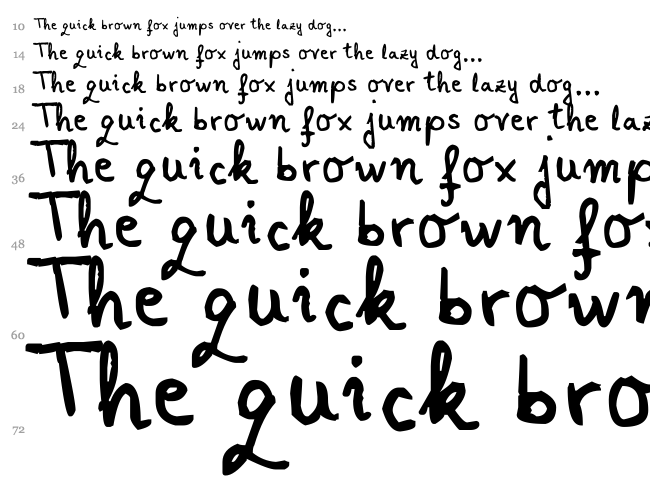 10 The quick brown fox jumps over the lazy dog...
14 The quick brown fox jumps over the lazy dog...
18 The quick brown fox jumps over the lazy dog...
24 The quick brown fox jumps over the laz
36 The quick brown fox jump
48 The quick brown fo
60 The quick brown
72 The quick bro